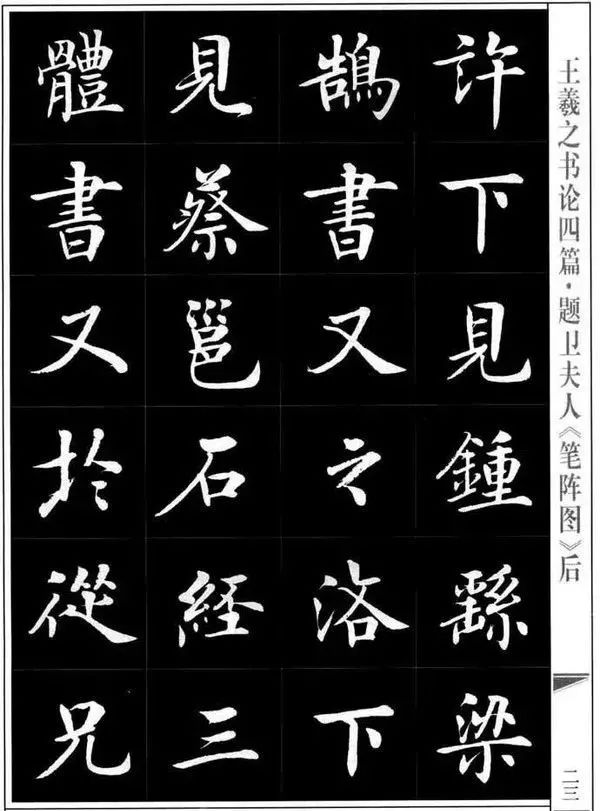 王羲之书论四篇·题卫夫人《笔阵图》后
二三
許下見鍾繇梁
鵠書又之洛下
見蔡邕石經三
體書又於從兄